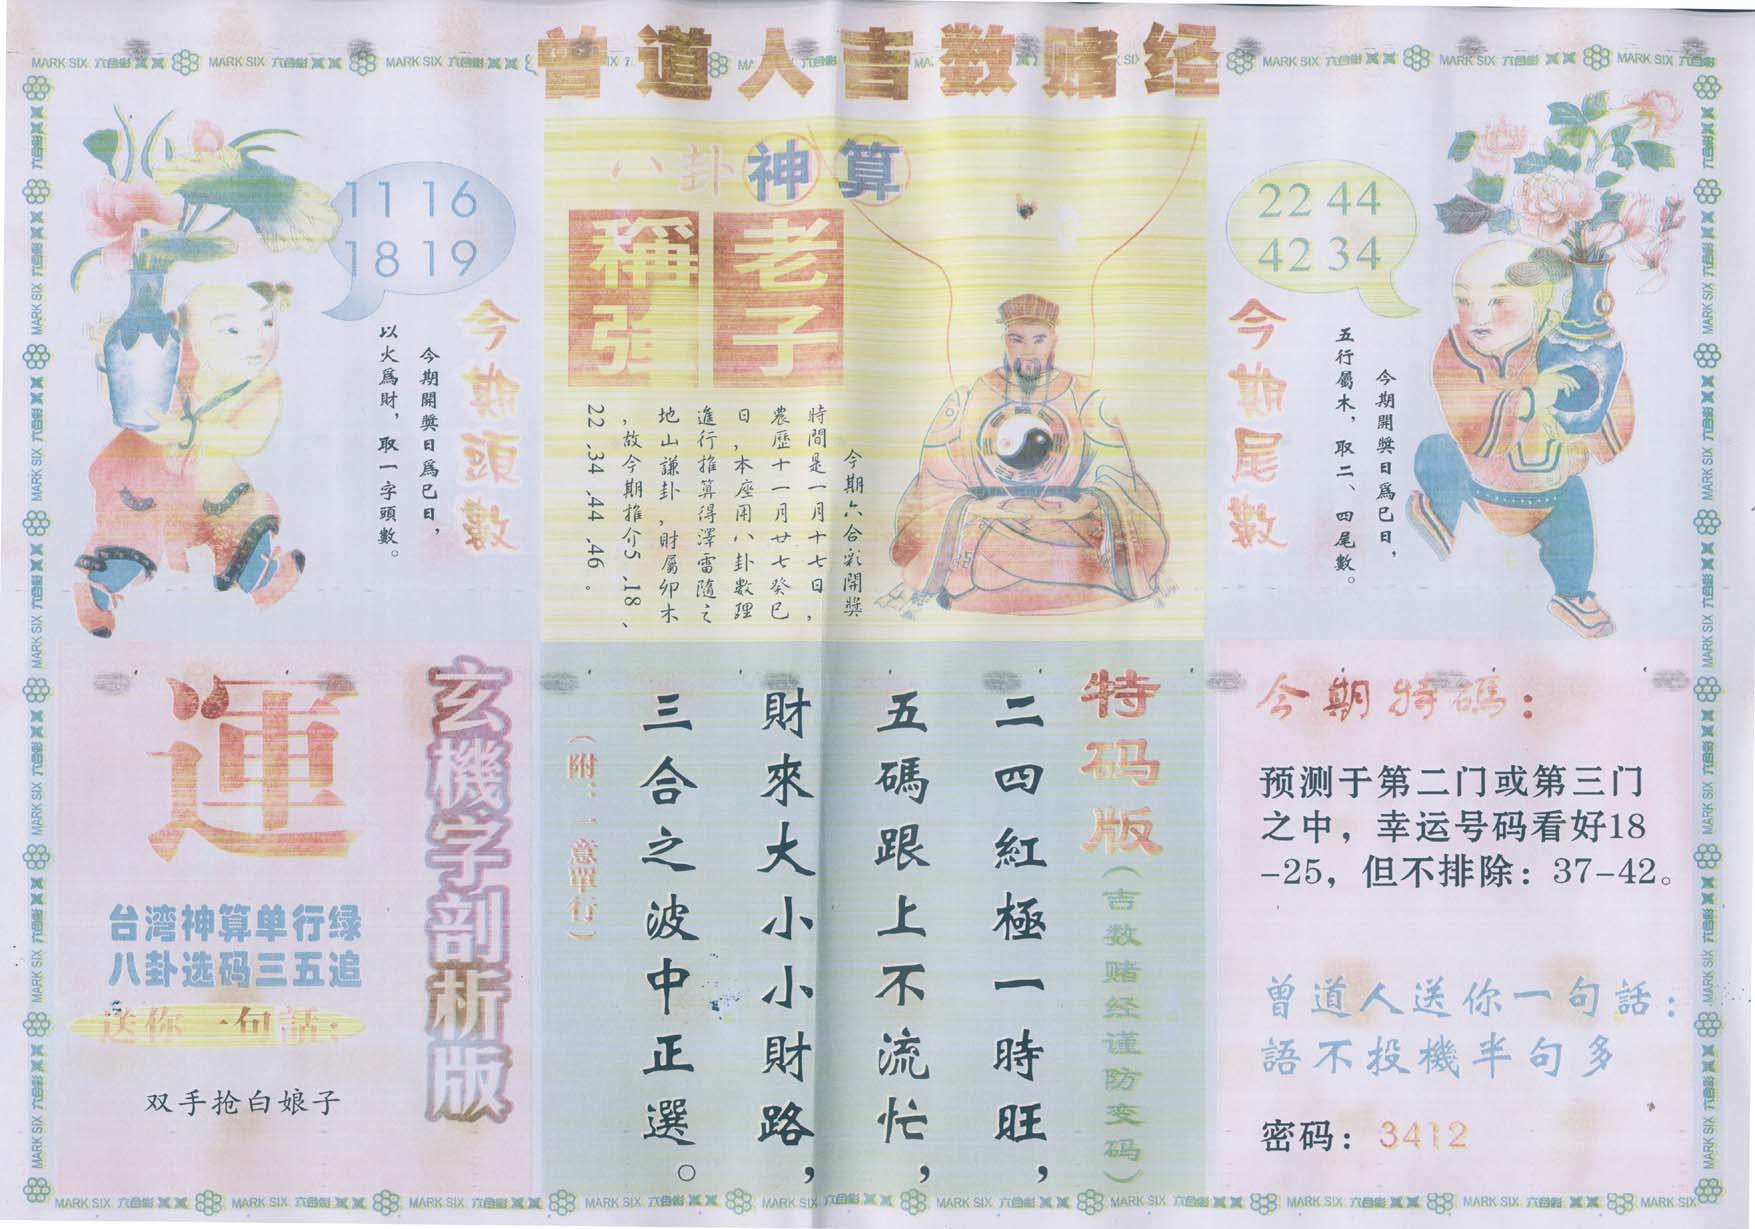 曾道人吉数赌经
八卦神算
老子
稱張
今期六合彩開獎
時間是一月十七日，
農歷十一月廿七癸巳
日，本座用八卦數理
進行推算得澤雷隨之
地山謙卦，財屬卯木
，故今期推介5、18、
22、34、44、46。
11 16
18 19
今期頭數
今期開獎日爲巳日，
以火爲財，取一字頭數。
22 44
42 34
今期尾數
今期開獎日爲巳日，
五行屬木，取二、四尾數。
玄機字剖析版
運
台湾神算单行绿
八卦选码三五追
送你一句話：
双手抢白娘子
特码版(吉数赌经谨防变码)
二四紅極一時旺，
五碼跟上不流忙，
財來大小小財路，
三合之波中正選。
(附：一意單行)
今期特碼：
预测于第二门或第三门
之中，幸运号码看好18
-25，但不排除：37-42。
曾道人送你一句話：
語不投機半句多
密码：3412
MARK SIX 六合彩